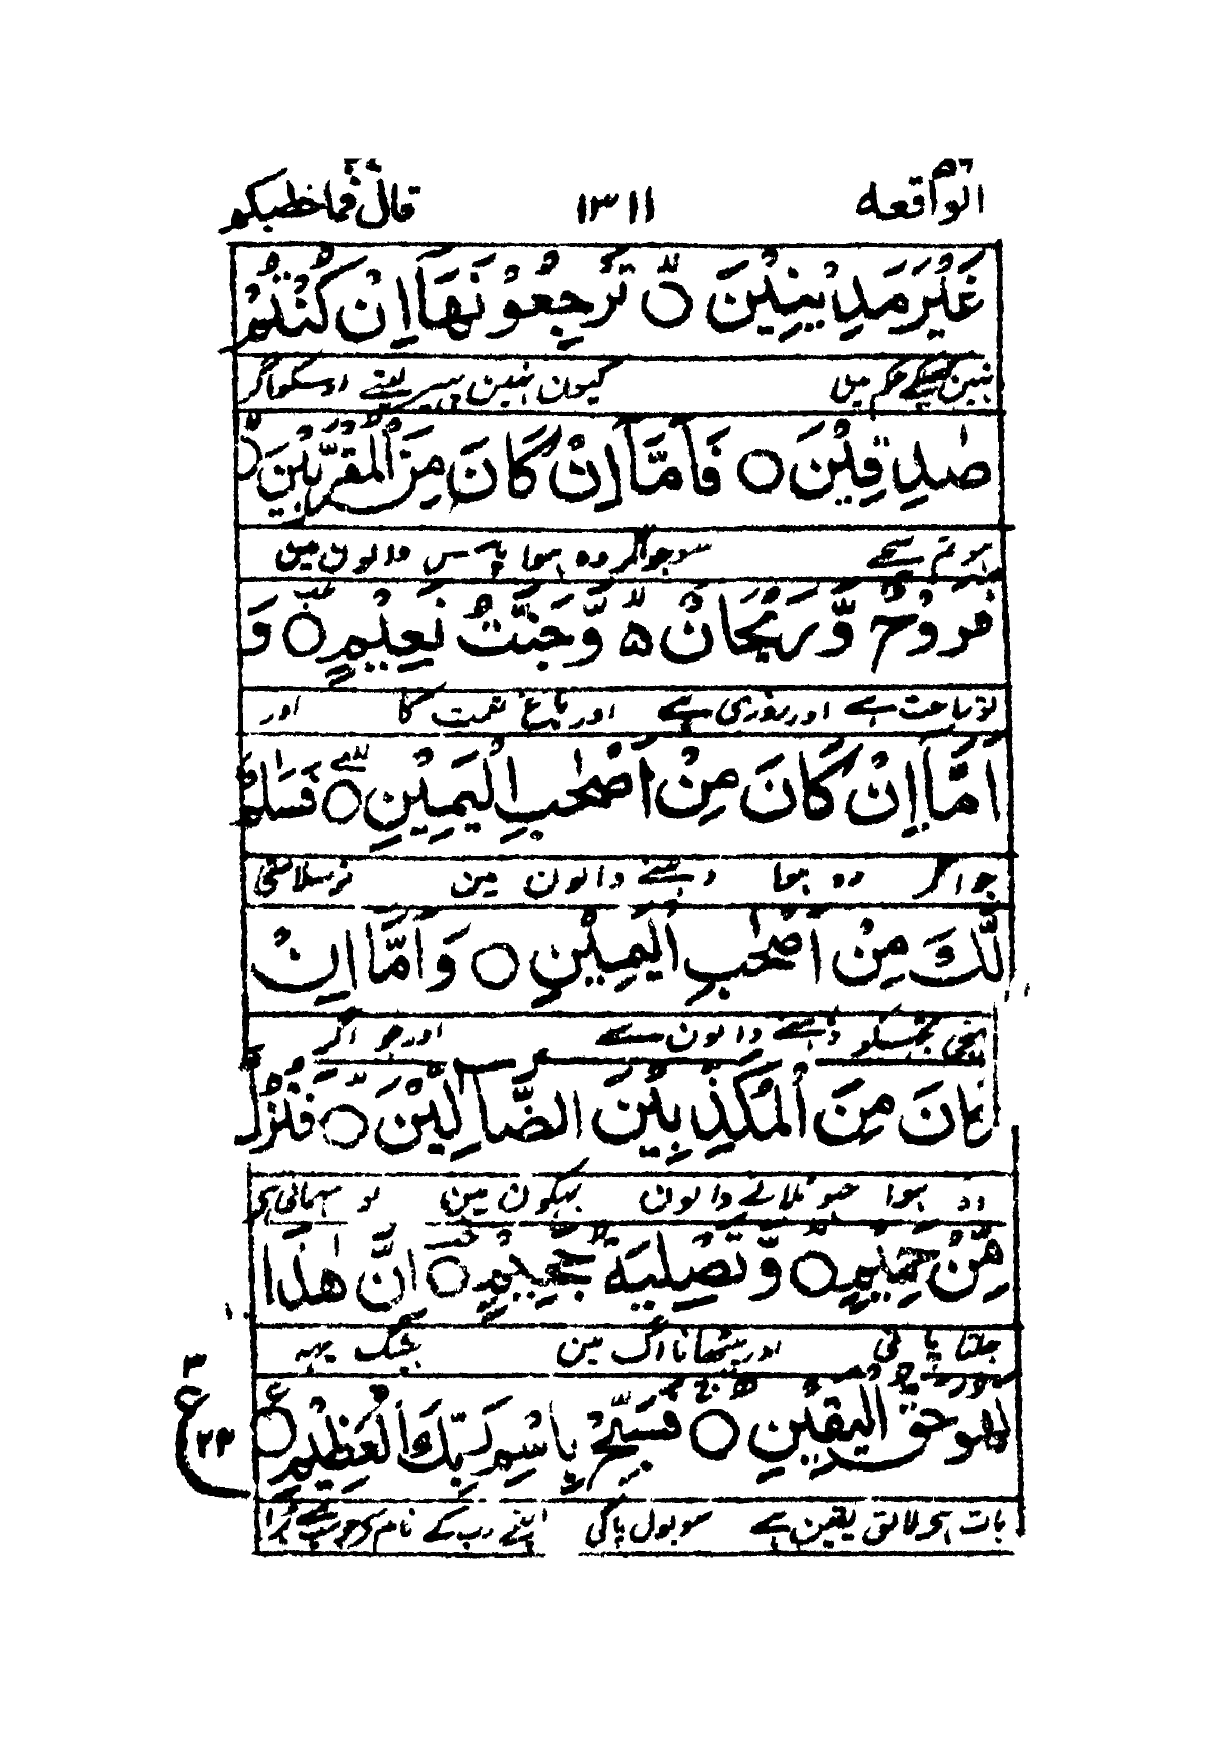 الواقعه ۵۶ ۱۳۱۱ قال فما خطبکم ۲۷
غَيْرَ مَدِيْنِيْنَ ۙ تَرْجِعُوْنَهَآ اِنْ كُنْتُمْ
نہین کسیکے حکم مین کیون نہین پہیر لیتے اوسکو اگر
صٰدِقِيْنَ ○ فَاَمَّآ اِنْ كَانَ مِنَ الْمُقَرَّبِيْنَ ۙ
ہو تم سچے سو جو اگر وہ ہوا پاس والون مین
فَرَوْحٌ وَّرَيْحَانٌ ۵ۙ وَّجَنَّتُ نَعِيْمٍ ○ وَ
تو راحت ہے اور روزی ہے اور باغ نعمت کا اور
اَمَّآ اِنْ كَانَ مِنْ اَصْحٰبِ الْيَمِيْنِ ○ فَسَلٰمٌ
جو اگر وہ ہوا دہنے والون مین تو سلامتی
لَّكَ مِنْ اَصْحٰبِ الْيَمِيْنِ ○ وَاَمَّآ اِنْ
پہنچی تجھکو دہنے والون سے اور جو اگر
كَانَ مِنَ الْمُكَذِّبِيْنَ الضَّآلِّيْنَ ○ فَنُزُلٌ
وہ ہوا جھٹلانے والون بہکون مین تو مہمانی ہی
مِّنْ حَمِيْمٍ ○ وَّتَصْلِيَةُ جَحِيْمٍ ○ اِنَّ هٰذَا
جلتا پانی اور بیٹھانا آگ مین بیشک یہہ
لَهُوَ حَقُّ الْيَقِيْنِ ○ فَسَبِّحْ بِاسْمِ رَبِّكَ الْعَظِيْمِ ○ ع
بات ہی لائق یقین ہے سو بول پاکی اپنے رب کے نام کی جو سب سے بڑا
۳
ع
۲۳